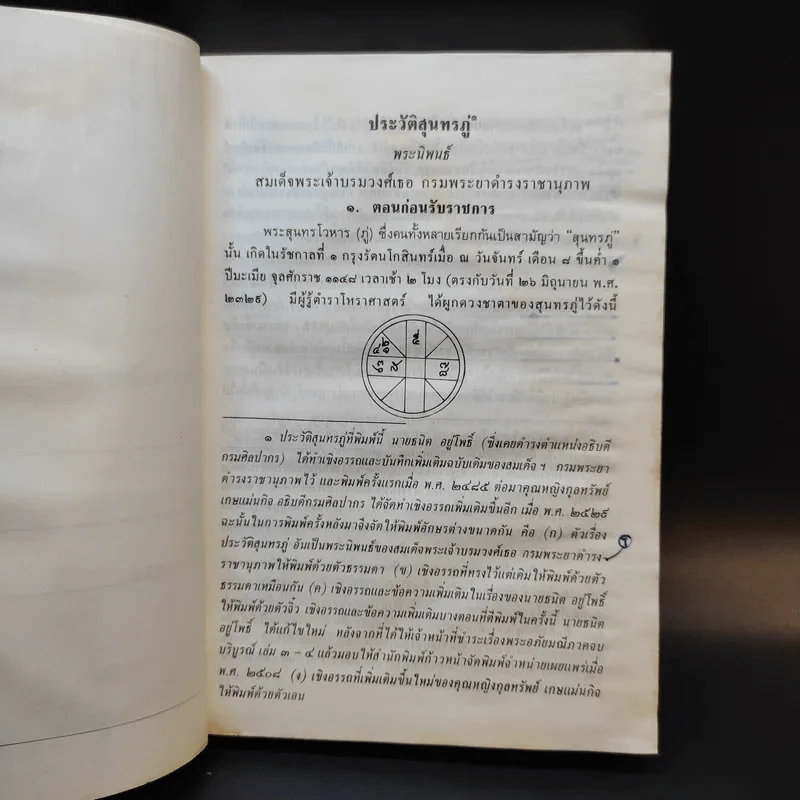 ประวัติสุนทรภู่๑
พระนิพนธ์
สมเด็จพระเจ้าบรมวงศ์เธอ กรมพระยาดำรงราชานุภาพ
๑. ตอนก่อนรับราชการ
พระสุนทรโวหาร (ภู่) ซึ่งคนทั้งหลายเรียกกันเป็นสามัญว่า “สุนทรภู่”
นั้น เกิดในรัชกาลที่ ๑ กรุงรัตนโกสินทร์เมื่อ ณ วันจันทร์ เดือน ๘ ขึ้นค่ำ ๑
ปีมะเมีย จุลศักราช ๑๑๔๘ เวลาเช้า ๒ โมง (ตรงกับวันที่ ๒๖ มิถุนายน พ.ศ.
๒๓๒๙) มีผู้รู้ตำราโหราศาสตร์ ได้ผูกดวงชาตาของสุนทรภู่ไว้ดังนี้
๑ ประวัติสุนทรภู่ที่พิมพ์นี้ นายธนิต อยู่โพธิ์ (ซึ่งเคยดำรงตำแหน่งอธิบดี
กรมศิลปากร) ได้ทำเชิงอรรถและบันทึกเพิ่มเติมฉบับเดิมของสมเด็จฯ กรมพระยา
ดำรงราชานุภาพไว้ และพิมพ์ครั้งแรกเมื่อ พ.ศ. ๒๔๘๕ ต่อมาคุณหญิงกุลทรัพย์
เกษแม่นกิจ อธิบดีกรมศิลปากร ได้จัดทำเชิงอรรถเพิ่มเติมขึ้นอีก เมื่อ พ.ศ. ๒๕๒๙
ฉะนั้นในการพิมพ์ครั้งหลังมาจึงจัดให้พิมพ์อักษรต่างขนาดกัน คือ (ก) ตัวเรื่อง
ประวัติสุนทรภู่ อันเป็นพระนิพนธ์ของสมเด็จพระเจ้าบรมวงศ์เธอ กรมพระยาดำรง-
ราชานุภาพให้พิมพ์ด้วยตัวธรรมดา (ข) เชิงอรรถที่ทรงไว้แต่เดิมให้พิมพ์ด้วยตัว
ธรรมดาเหมือนกัน (ค) เชิงอรรถและข้อความเพิ่มเติมในเรื่องของนายธนิต อยู่โพธิ์
ให้พิมพ์ด้วยตัวจิ๋ว เชิงอรรถและข้อความเพิ่มเติมบางตอนที่ตีพิมพ์ในครั้งนี้ นายธนิต
อยู่โพธิ์ ได้แก้ไขใหม่ หลังจากที่ได้ให้เจ้าหน้าที่ชำระเรื่องพระอภัยมณีภาคจบ
บริบูรณ์ เล่ม ๓ – ๔ แล้วมอบให้สำนักพิมพ์ก้าวหน้าจัดพิมพ์จำหน่ายเผยแพร่เมื่อ
พ.ศ. ๒๕๐๘ (ง) เชิงอรรถที่เพิ่มเติมขึ้นใหม่ของคุณหญิงกุลทรัพย์ เกษแม่นกิจ
ให้พิมพ์ด้วยตัวเอน